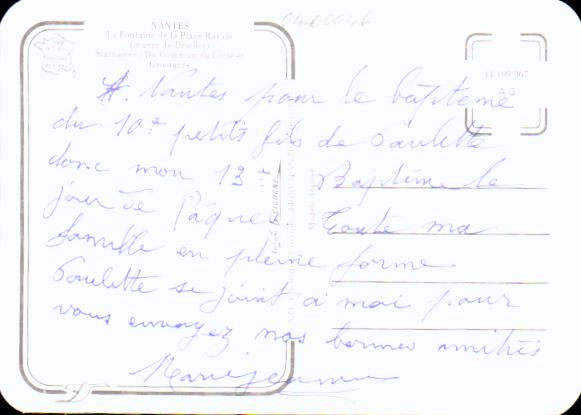 04100046
NANTES
La Fontaine de la Place Royale
(œuvre de Driollet)
Statuaires : Du Commun du Locle et
Grootaërs
44.109.367
A 3
A. Nantes pour le baptème
du 10è petits fils de Paulette
donc mon 13è Baptème le
jour de Pâques Toute ma
famille en pleine forme
Paulette se joint à moi pour
vous envoyez nos bonnes amitiés
Marie jeanne